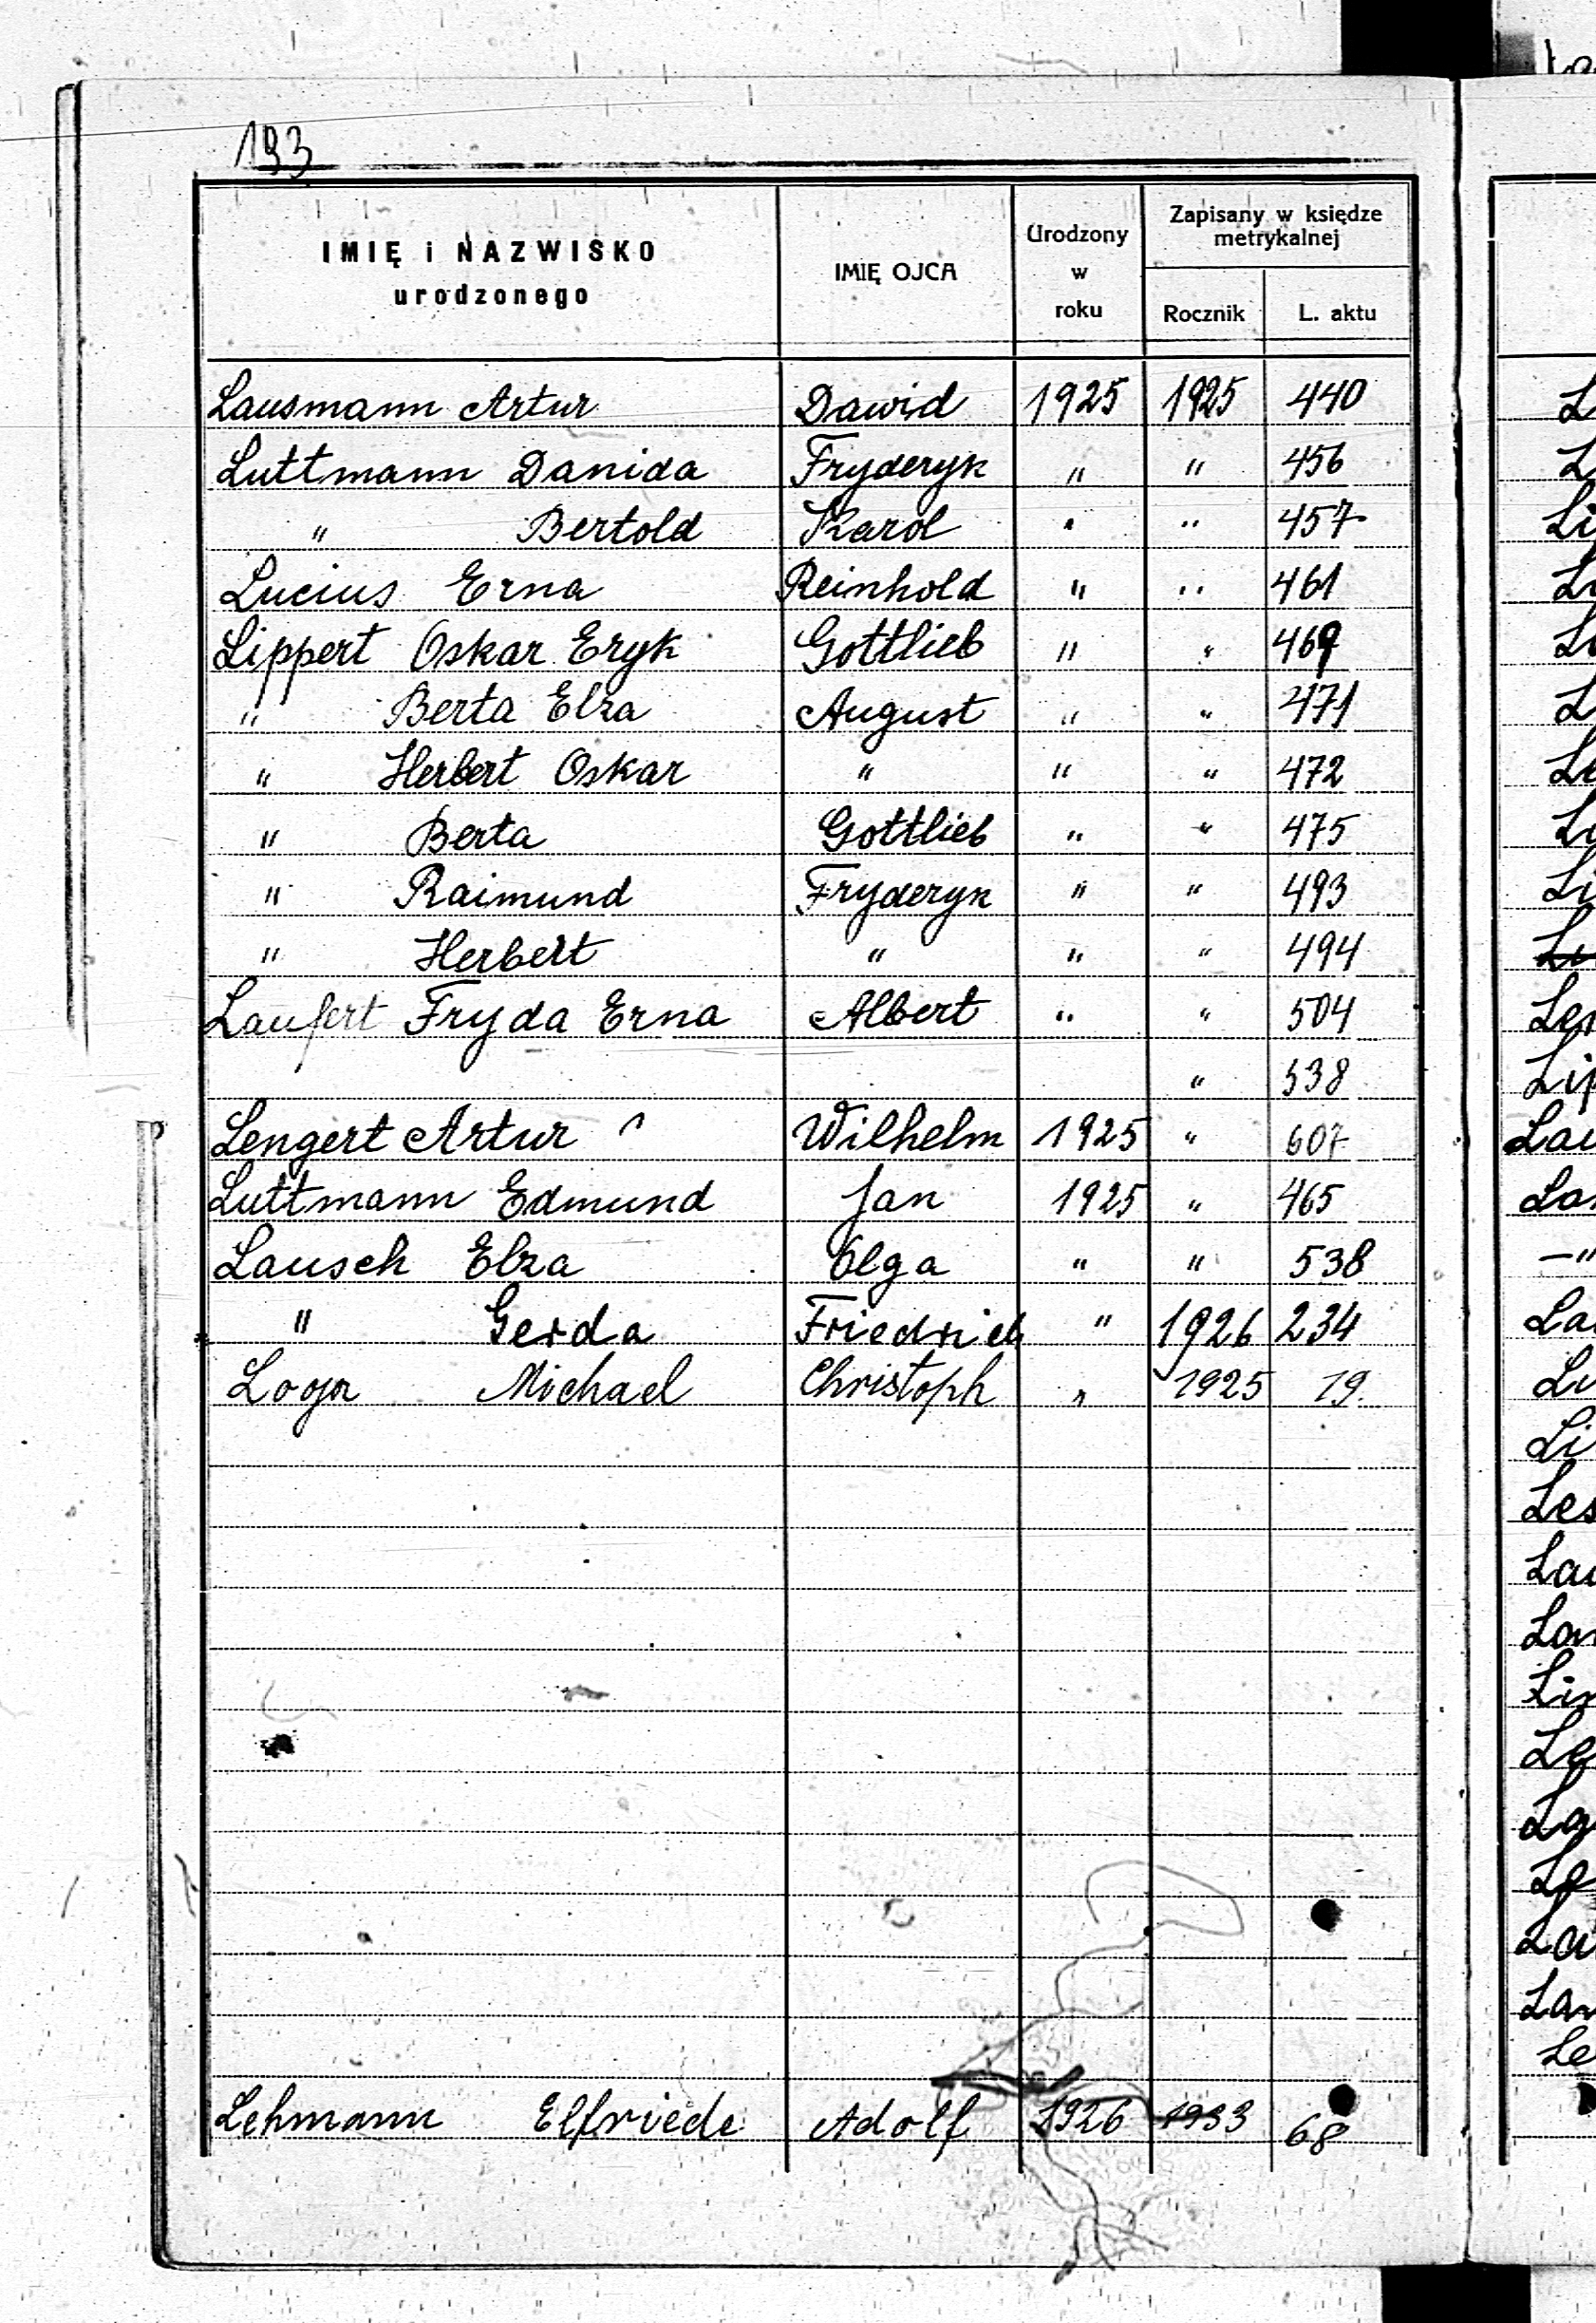 193
IMIĘ i NAZWISKO urodzonego IMIĘ OJCA Urodzony w roku Zapisany w księdze metrykalnej Rocznik L. aktu
Lausmann Artur Dawid 1925 1925 440
Luttmann Danida Fryderyk " " 456
" Bertold Karol " " 457
Lucius Erna Reinhold " " 461
Lippert Oskar Eryk Gottlieb " " 469
" Berta Elza August " " 471
" Herbert Oskar " " " 472
" Berta Gottlieb " " 475
" Raimund Fryderyk " " 493
" Herbert " " " 494
Laufert Fryda Erna Albert " " 504
" 538
Lengert Artur Wilhelm 1925 " 607
Luttmann Edmund Jan 1925 " 465
Lausch Elza Olga " " 538
" Gerda Friedrich " 1926 234
Michael Christoph " 1925 19.
Lehmann Elfriede Adolf 1926 1933 68